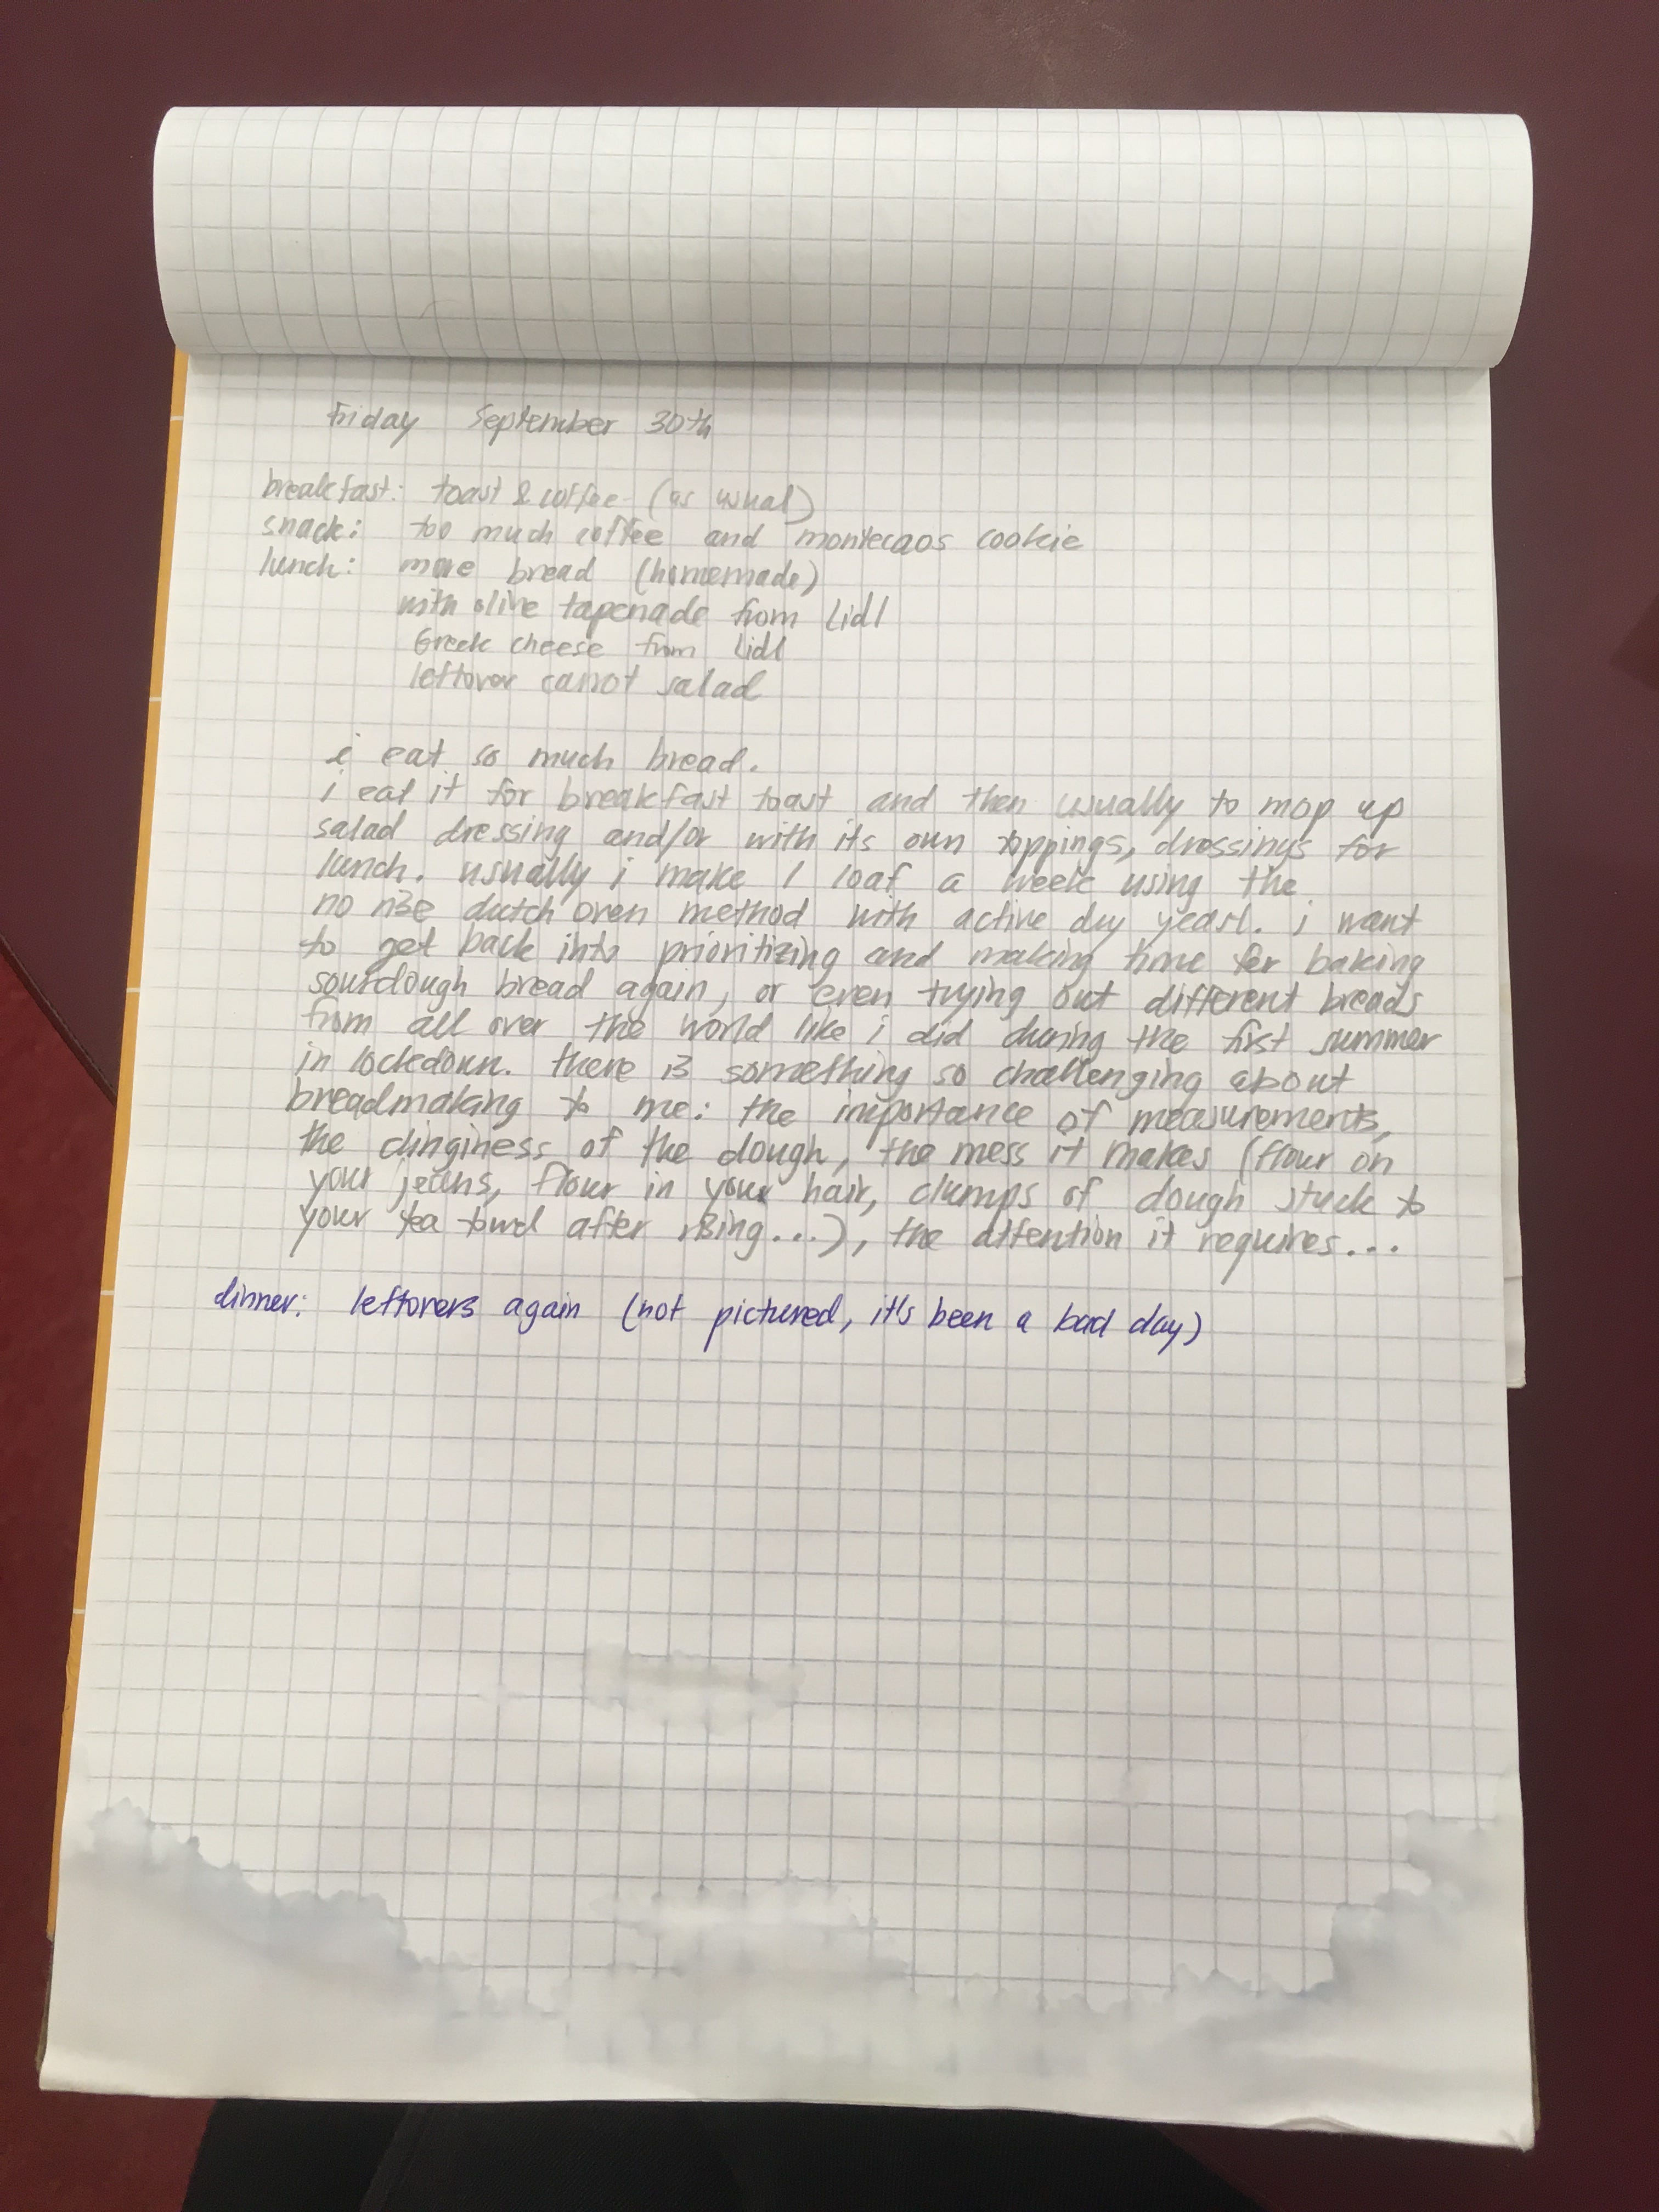 Friday September 30th
breakfast: toast & coffee (as usual)
snack: too much coffee and montecaos cookie
lunch: more bread (homemade)
with olive tapenade from Lidl
Greek cheese from Lidl
leftover carrot salad
i eat so much bread.
i eat it for breakfast toast and then usually to mop up
salad dressing and/or with its own toppings, dressings for
lunch. usually i make 1 loaf a week using the
no rise dutch oven method with active dry yeast. i want
to get back into prioritizing and making time for baking
sourdough bread again, or even trying out different breads
from all over the world like i did during the first summer
in lockdown. there is something so challenging about
breadmaking to me: the importance of measurements,
the clinginess of the dough, the mess it makes (flour on
your jeans, flour in your hair, clumps of dough stuck to
your tea towel after rising...), the attention it requires...
dinner: leftovers again (not pictured, it's been a bad day)